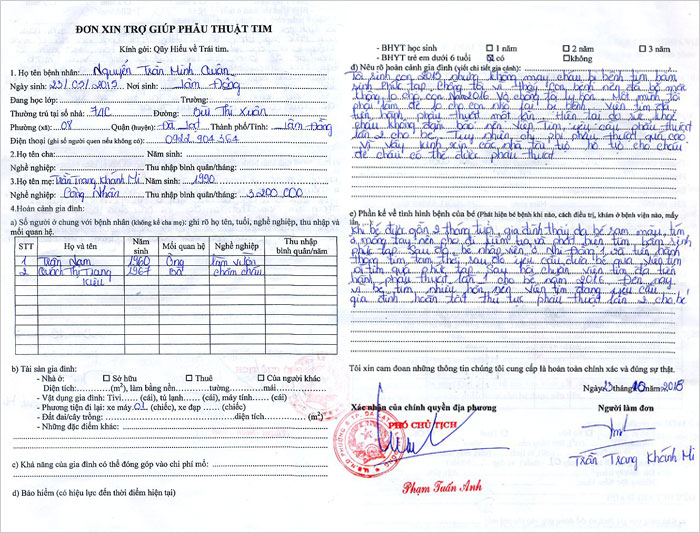 ĐƠN XIN TRỢ GIÚP PHẪU THUẬT TIM
Kính gởi: Qũy Hiểu về Trái tim.
1. Họ tên bệnh nhân: Nguyễn Trần Minh Quân
Ngày sinh: 23/05/2015 Nơi sinh: Lâm Đồng
Đang học lớp: Trường:
Thường trú tại số nhà: 7AC Đường: Bùi Thị Xuân
Phường (xã): 08 Quận (huyện): Đà Lạt Thành phố/Tỉnh: Lâm Đồng
Điện thoại (ghi số người quen nếu không có): 0922 904 564
2.Họ tên cha: Năm sinh:
Nghề nghiệp: Thu nhập bình quân/tháng:
3.Họ tên mẹ: Trần Trang Khánh Mi Năm sinh: 1990
Nghề nghiệp: Công Nhân Thu nhập bình quân/tháng: 3.200.000
4.Hoàn cảnh gia đình:
a) Số người ở chung với bệnh nhân (không kể cha mẹ): ghi rõ họ tên, tuổi, nghề nghiệp, thu nhập và
mối quan hệ.
STT Họ và tên Năm sinh Mối quan hệ Nghề nghiệp Thu nhập bình quân/năm
1 Trần Nam 1960 Ông làm vườn
2 Quách Thị Trang Kiều 1967 Bà chăm cháu
b) Tài sản gia đình:
- Nhà ở: Sở hữu Thuê Của người khác
Diện tích:(m²), làm bằng nền tường mái
- Vật dụng gia đình: Tivi (cái), tủ lạnh (cái), máy tính (cái)
- Phương tiện đi lại: xe máy 01 (chiếc), xe đạp (chiếc)
- Đất đai/cây trồng: diện tích (m²)
- Những đặc điểm khác:
c) Khả năng của gia đình có thể đóng góp vào chi phí mổ:
d) Bảo hiểm (có hiệu lực đến thời điểm hiện tại)
- BHYT học sinh 1 năm 2 năm 3 năm
- BHYT trẻ em dưới 6 tuổi có không
đ) Nêu rõ hoàn cảnh gia đình (viết chi tiết gia cảnh):
Tôi sinh con 2015 nhưng không may cháu bị bệnh tim bẩm
sinh phức tạp. Chồng tôi vì thấy con bệnh nên đã bỏ mặc
không lo cho con. Năm 2016 Vợ chồng tôi ly hôn. Một mình tôi
phải làm để lo cho con nhỏ bị bệnh, viện tim đã
tiến hành phẫu thuật một lần. Hiện tại do sức khoẻ
cháu không đảm bảo nên Viện Tim yêu cầu phẫu thuật
lần 2 cho bé. Tuy nhiên chi phí phẫu thuật quá cao
vì vậy kính xin các nhà tài trợ hỗ trợ cho cháu
để cháu có thể được phẫu thuật
e) Phần kể về tình hình bệnh của bé (Phát hiện bé bệnh khi nào, cách điều trị, khám ở bệnh viện nào, mấy
lần
Khi bé được gần 2 tháng tuổi, gia đình thấy da bé sạm, máu, tím
ở móng tay nên cho đi siêu tim và phát hiện tim bẩm sinh
phức tạp. Sau đó bé nhập viện ở Nhi Đồng và tiến hành
thông tim tạm thời, sau đó yêu cầu đưa bé qua Viện tim
vì tim quá phức tạp. Sau hội chuẩn viện tim đã tiến
hành phẫu thuật lần 1 cho bé năm 2016. Đến nay
vì bé tím nhiều hơn nên viện tim đang yêu cầu
gia đình hoàn tất thủ tục phẫu thuật lần 2 cho bé
Tôi xin cam đoan những thông tin chúng tôi cung cấp là hoàn toàn chính xác và đúng sự thật.
tháng 10
Xác nhận của chính quyền địa phương Người làm đơn
PHÓ CHỦ TỊCH
Trần Trang Khánh Mi
Phạm Tuấn Anh